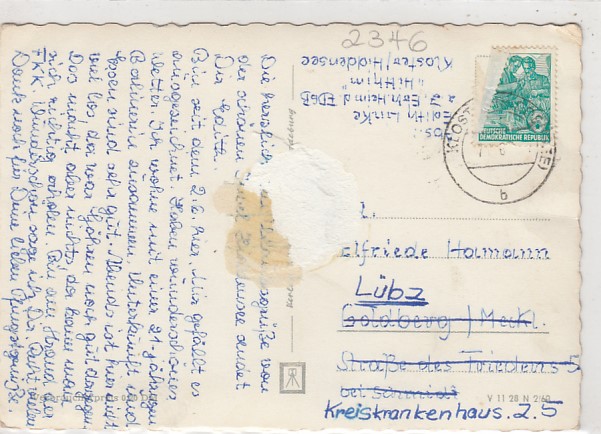 Die herzlich Urlaubsgrüße von
der schönen Insel Hiddensee sendet
Dir Edith.
Bin seit dem 2.6. hier. Mir gefällt es
ausgezeichnet. Haben wunderschönes
Wetter. Ich wohne mit einer 21 jährigen
Berlinerin zusammen. Unterkunft und
Essen sind sehr gut. Abends ist hier nicht
viel los da war Göhren noch gut dagegen.
Das macht aber nichts, da kann man
sich richtig erholen. Bin am Strand bei
FKK. Wunderschön sage ich Dir. Recht vielen
Dank noch für Deine lieben Pfingstgrüße.
2346
Edith Lincke
z. Z. Erh. Heim d. FDGB
"Hitthim"
Kloster/Hiddensee
DEUTSCHE
DEMOKRATISCHE REPUBLIK
KLOST
b
Elfriede Hamann
Lübz
Goldberg / Meckl.
Straße des Friedens 5
bei Schmidt
Kreiskrankenhaus. Z. 5
V 11 28 N 2/60